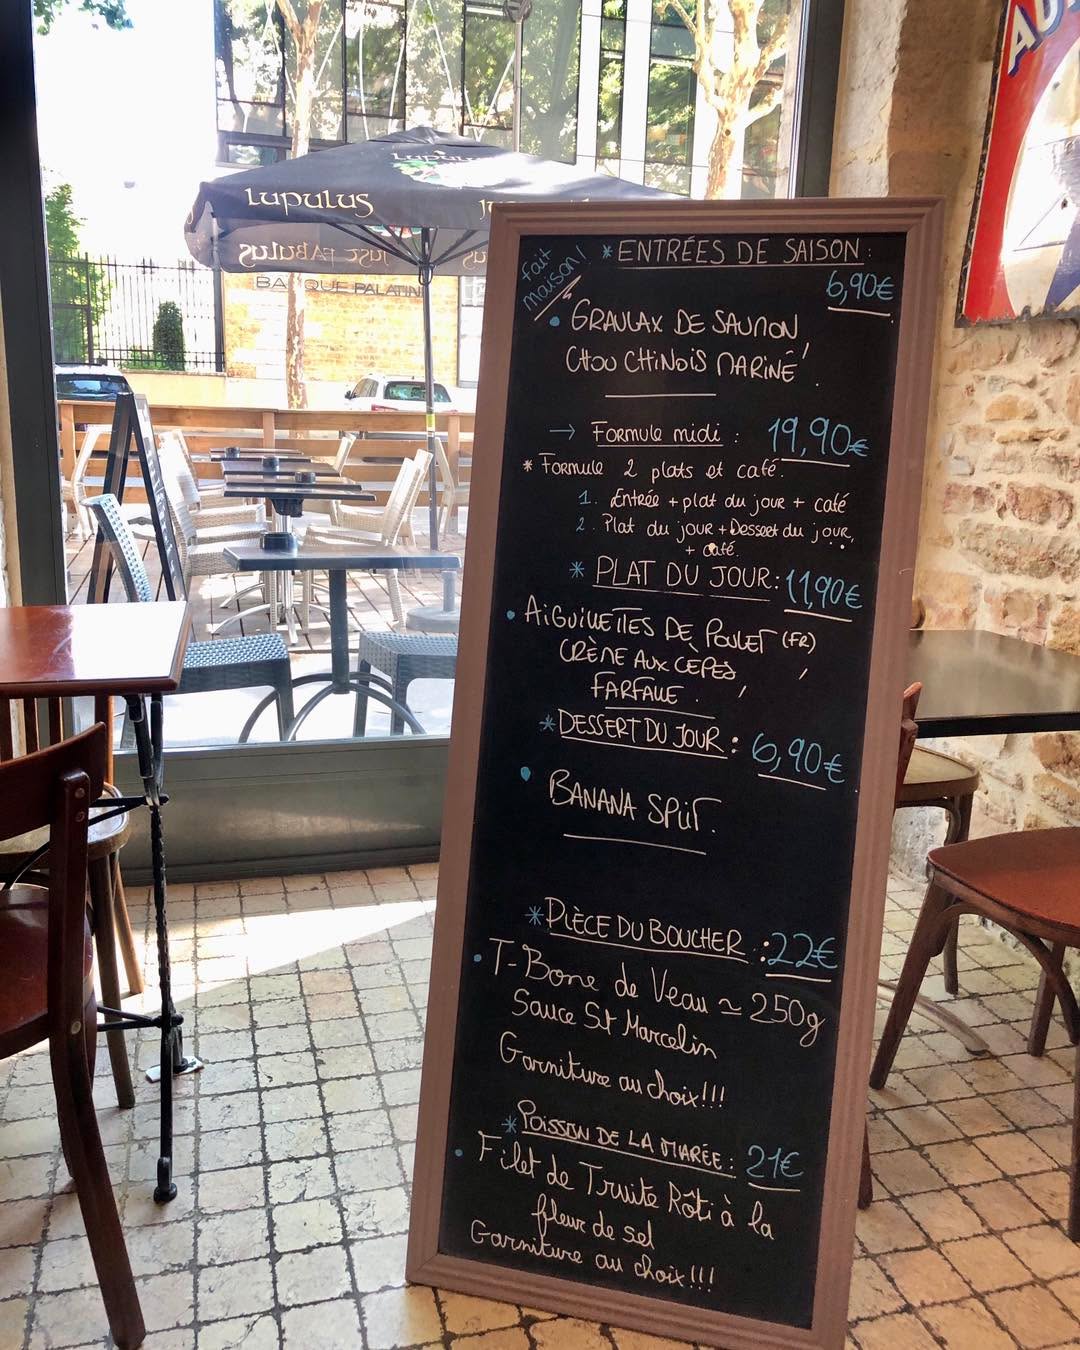 AU
Lupulus
Lupulus
JUST FABULUS
BANQUE PALATINE
fait
maison!
* ENTRÉES DE SAISON :
6,90€
• GRAVLAX DE SAUMON
CHOU CHINOIS MARINÉ !
→ Formule midi : 19,90€
* Formule 2 plats et café.
1. Entrée + plat du jour + café
2. Plat du jour + Dessert du jour,
+ café.
* PLAT DU JOUR : 11,90€
• AIGUILLETTES DE POULET (FR)
CRÈME AUX CÈPES,
FARFALLE.
* DESSERT DU JOUR : 6,90€
• BANANA SPLIT.
* PIÈCE DU BOUCHER : 22€
• T-Bone de Veau ≃ 250g
Sauce St Marcelin
Garniture au choix!!!
* POISSON DE LA MARÉE : 21€
• Filet de Truite Rôti à la
fleur de sel
Garniture au choix!!!